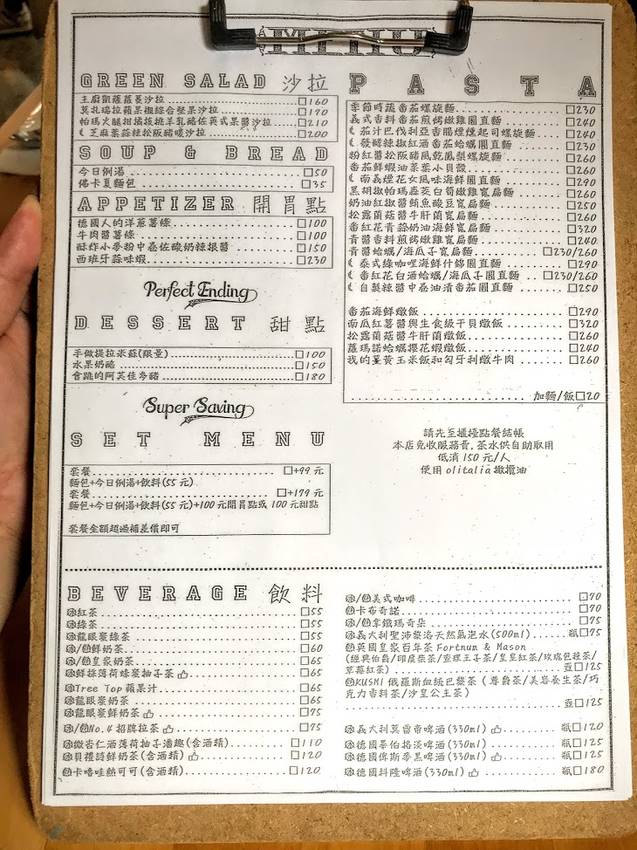 MENU
GREEN SALAD 沙拉
主廚凱薩蘿蔓沙拉 □160
莫札瑞拉蘋果椒綜合堅果沙拉 □190
帕瑪火腿柑橘核桃羊乳酪佐英式果醬沙拉 □210
芝麻葉蒜辣松阪豬暖沙拉 □200
SOUP & BREAD
今日例湯 □50
佛卡夏麵包 □35
APPETIZER 開胃點
德國人的洋蔥薯條 □100
牛肉醬薯條 □100
酥炸小麥粉中卷佐酸奶辣根醬 □150
西班牙蒜味蝦 □230
Perfect Ending
DESSERT 甜點
手做提拉米蘇(限量) □100
水果奶酪 □150
會跳的阿芙佳朵豬 □180
Super Saving
SET MENU
套餐 □+99 元
麵包+今日例湯+飲料(55 元)
套餐 □+179 元
麵包+今日例湯+飲料(55 元)+100 元開胃點或 100 元甜點
套餐金額超過補差價即可
PASTA
季節時蔬番茄螺旋麵 □230
義式香料番茄煎烤嫩雞圓直麵 □240
茄汁巴伐利亞香腸煙燻起司螺旋麵 □240
發酵辣椒紅酒番茄蛤蠣圓直麵 □230
粉紅醬松阪豬鳳乾鳳梨螺旋麵 □260
番茄鮮蝦油菜葉小貝殼 □260
南義煙花女風味海鮮圓直麵 □290
黑胡椒帕瑪蘆筍白筍嫩雞寬扁麵 □260
奶油紅椒醬鮪魚酸豆寬扁麵 □250
松露菌菇醬牛肝菌寬扁麵 □260
番紅花青蒜奶油海鮮寬扁麵 □320
青醬香料煎烤嫩雞寬扁麵 □240
青醬蛤蠣/海瓜子寬扁麵 □230/260
泰式綠咖哩海鮮什錦圓直麵 □290
番紅花白酒蛤蠣/海瓜子圓直麵 □230/260
自製辣醬中卷油漬番茄圓直麵 □250
番茄海鮮燉飯 □290
南瓜紅薯醬與生食級干貝燉飯 □320
松露菌菇醬牛肝菌燉飯 □260
羅瑪諾蛤蠣櫻花蝦燉飯 □240
我的薑黃玉米飯和匈牙利燉牛肉 □260
加麵/飯□20
請先至櫃檯點餐結帳
本店免收服務費,茶水供自助取用
低消 150 元/人
使用 olitalia 橄欖油
BEVERAGE 飲料
紅茶 □55
綠茶 □55
龍眼蜜綠茶 □65
/鮮奶茶 □60
/皇家奶茶 □65
鮮採薄荷蜂蜜柚子茶 □65
Tree Top 蘋果汁 □65
龍眼蜜奶茶 □65
龍眼蜜鮮奶茶 □75
/No.4 招牌拉茶 □75
微杏仁酒薄荷柚子潘趣(含酒精) □110
貝禮詩鮮奶茶(含酒精) □120
卡嚕哇熱可可(含酒精) □120
/美式咖啡 □70
卡布奇諾 □70
/拿鐵瑪奇朵 □75
義大利聖沛黎洛天然氣泡水(500ml) 瓶□75
英國皇家百年茶 Fortnum & Mason
(經典伯爵/印度蔡茶/威理王子茶/皇皇紅茶/玫瑰包種茶/
草莓紅茶) 壺□125
KUSMI 俄羅斯血統巴黎茶 (尊爵茶/美容養生茶/巧
克力香料茶/沙皇公主茶)
壺□125
義大利莫雷帝啤酒(330ml) 瓶□120
德國畢伯格淡啤酒(330ml) 瓶□125
德國俾斯麥黑啤酒(330ml) 瓶□125
德國科隆啤酒(330ml) 瓶□180